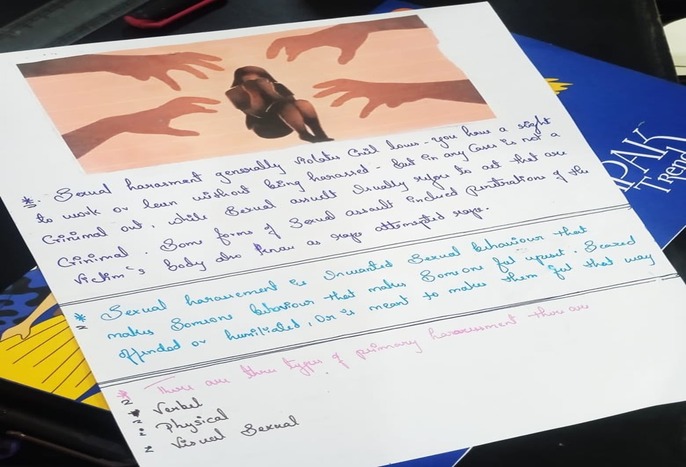 * Sexual harasment generally violates Civil laws - you have a right
to work or lean without being harassed - But in any Case is not a
Criminal act, while Sexual assult Usually refers to act that are
Criminal. Some forms of Sexual assult inclued Penitrations of the
Victim's body also as rape attempted rape.
* Sexual harassement is Unwanted Sexual behaviour that
makes Someone behaviour that makes Someone feel upset. Scared
offended or humiliated, Or is meant to make them feel that way
* There are three types of primary harassment there are
Verbel
Physical
Visual Sexual
PAK
Trend